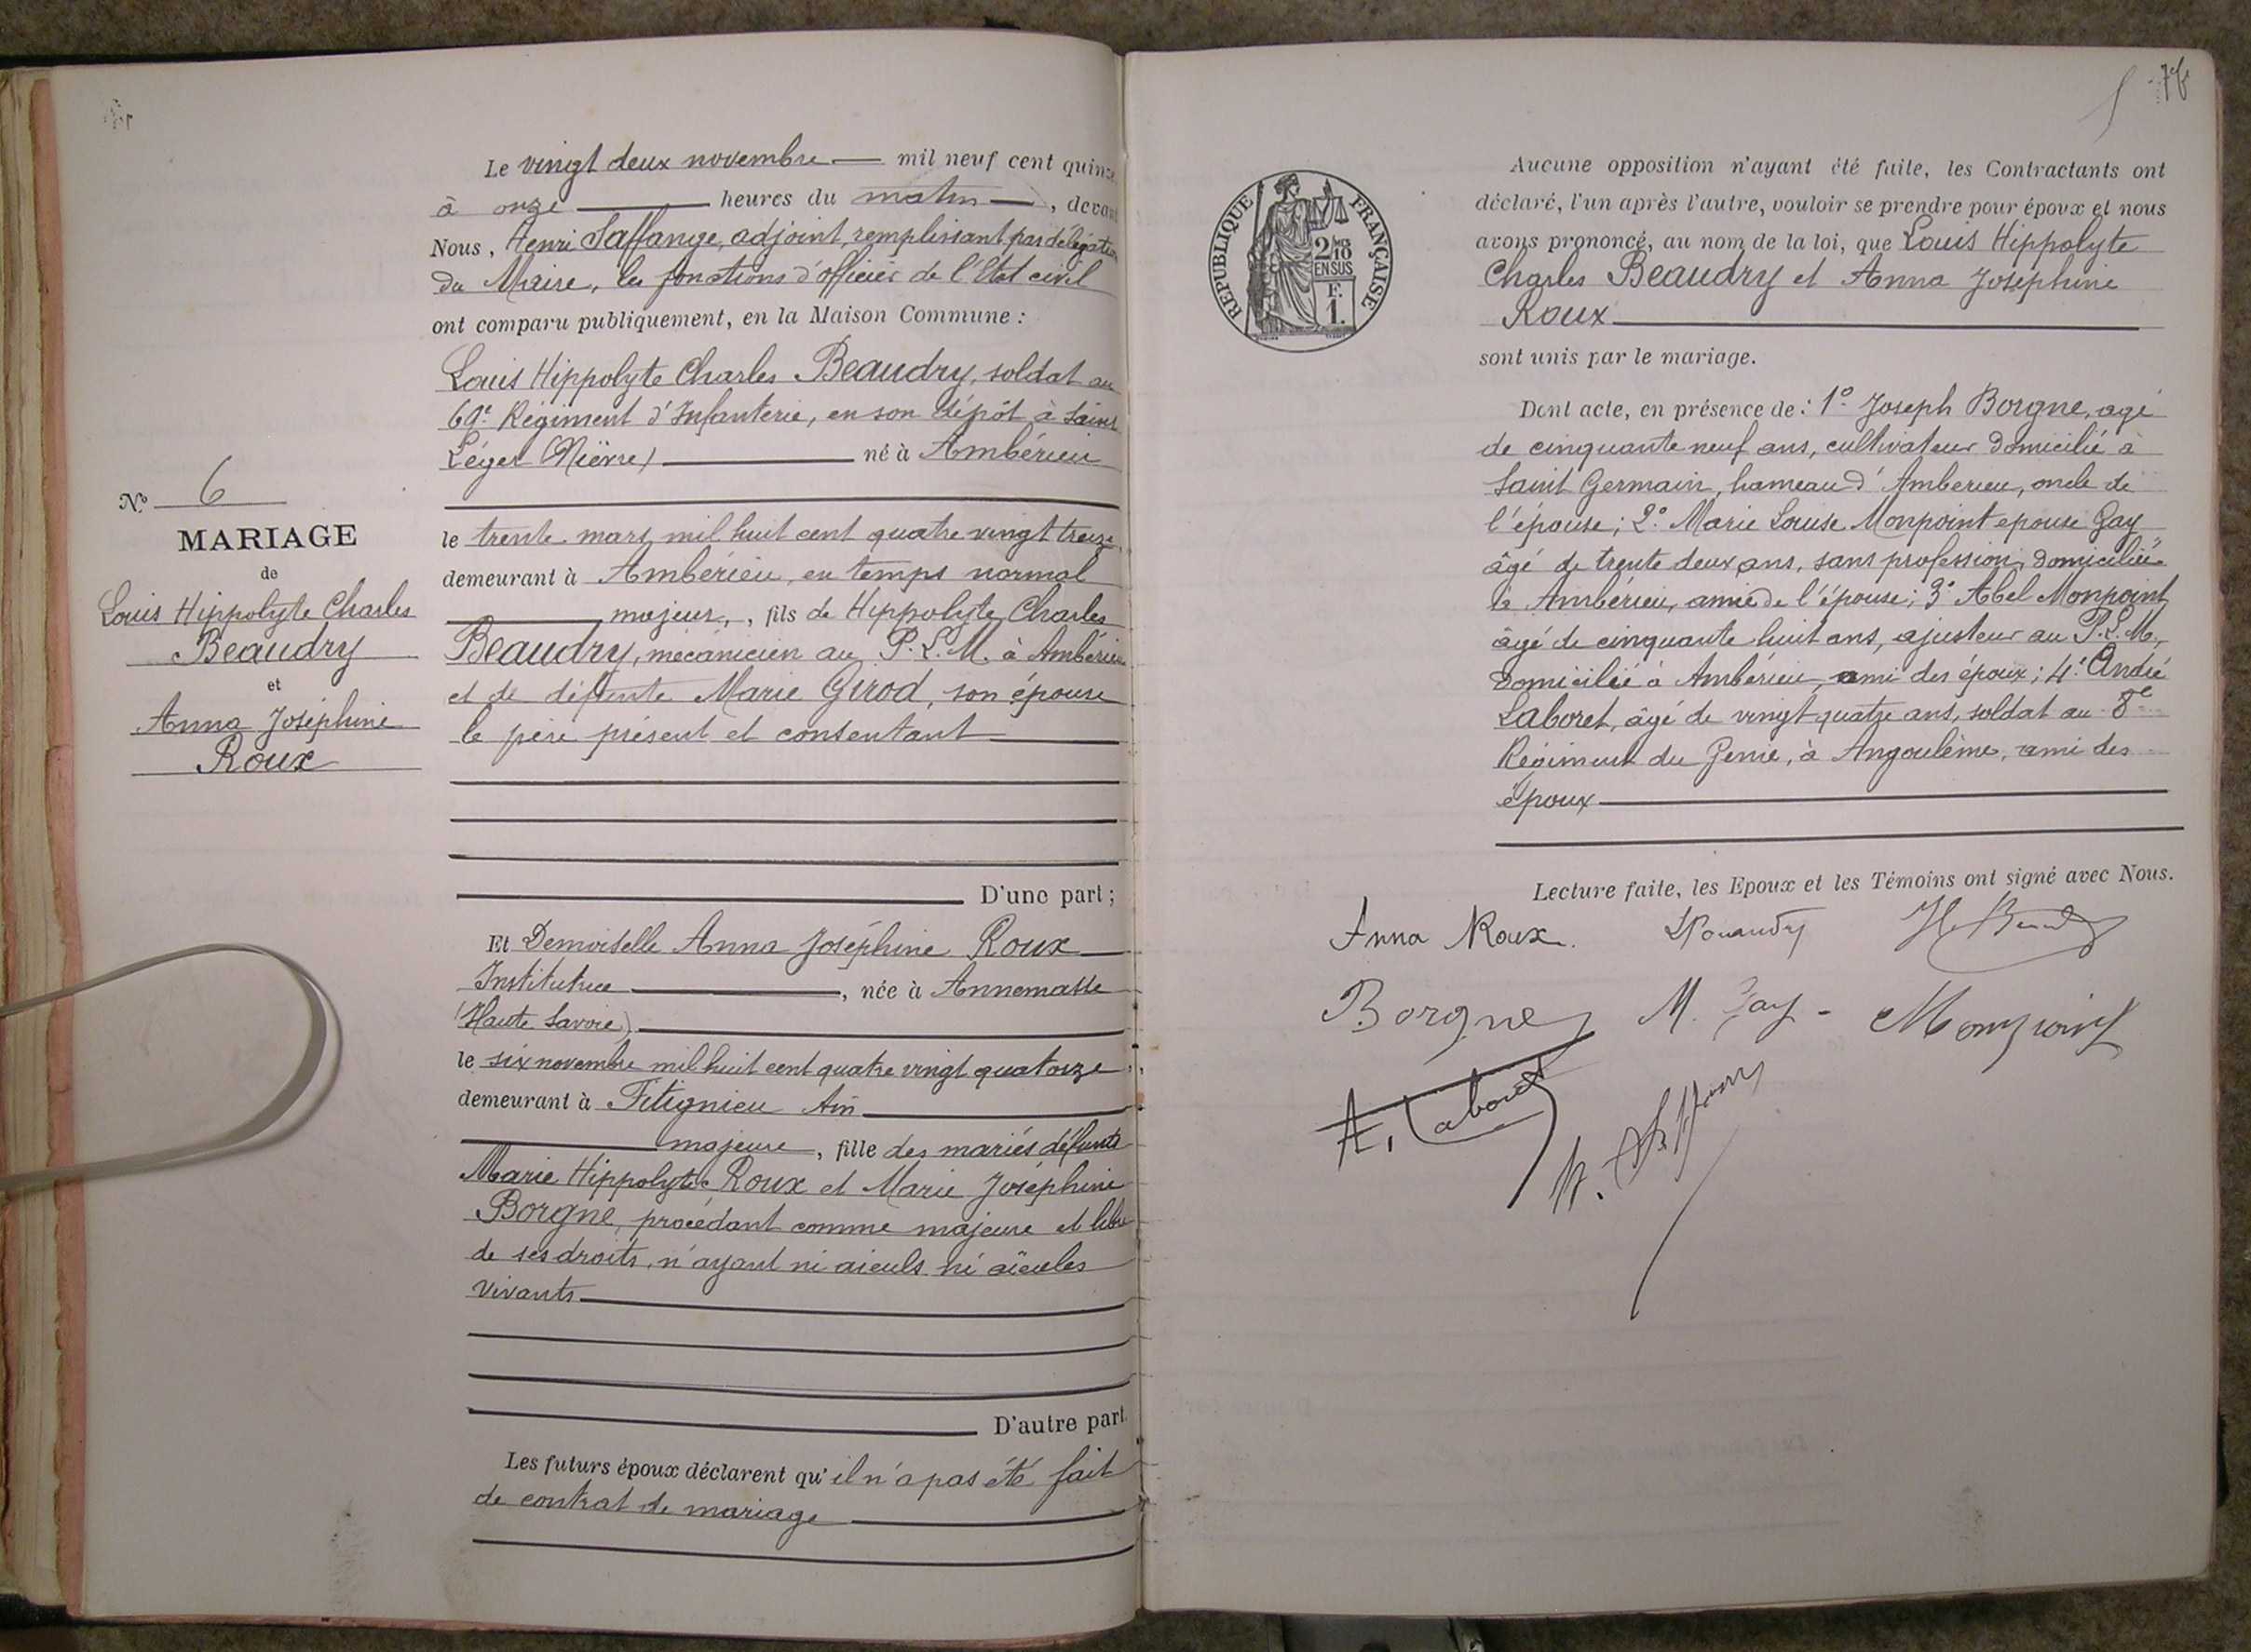 Le vingt deux novembre — mil neuf cent quinze
à onze — heures du matin —, devant
Nous, Henri Saffange, adjoint, remplissant par délégation
du Maire, les fonctions d'officier de l'Etat civil
ont comparu publiquement, en la Maison Commune :
Louis Hippolyte Charles Beaudry, soldat au
60e Régiment d'Infanterie, en son dépôt à Saint
Léger (Nièvre) — né à Ambérieu
le trente mars mil huit cent quatre vingt treize,
demeurant à Ambérieu, en temps normal
majeur, , fils de Hippolyte Charles
Beaudry, mécanicien au P.L.M. à Ambérieu
et de défunte Marie Girod, son épouse
le père présent et consentant
D'une part ;
No 6
MARIAGE
de
Louis Hippolyte Charles
Beaudry
et
Anna Joséphine
Roux
Et Demoiselle Anna Joséphine Roux
Institutrice —, née à Annemasse
(Haute Savoie)
le six novembre mil huit cent quatre vingt quatorze
demeurant à Fitignieu Ain
majeure, fille des mariés défunts
Marie Hippolyte Roux et Marie Joséphine
Borgne, procédant comme majeure et libre
de ses droits, n'ayant ni aieuls ni aïeules
vivants
D'autre part.
Les futurs époux déclarent qu'il n'a pas été fait
de contrat de mariage
RÉPUBLIQUE FRANÇAISE
2/10
EN SUS
F.
1.
Aucune opposition n'ayant été faite, les Contractants ont
déclaré, l'un après l'autre, vouloir se prendre pour époux et nous
avons prononcé, au nom de la loi, que Louis Hippolyte
Charles Beaudry et Anna Joséphine
Roux
sont unis par le mariage.
Dont acte, en présence de : 1º Joseph Borgne, agé
de cinquante neuf ans, cultivateur domicilié à
Saint Germain, hameau d'Amberieu, oncle de
l'épouse ; 2º Marie Louise Monpoint epouse Gay
âgé de trente deux ans, sans profession, domiciliée
à Ambérieu, amie de l'épouse ; 3º Abel Monpoint
âgé de cinquante huit ans, ajusteur au P.L.M.,
domicilié à Ambérieu, ami des époux ; 4º André
Laboret, âgé de vingt quatre ans, soldat au 8e
Régiment du Genie, à Angoulême, ami des
époux
Lecture faite, les Epoux et les Témoins ont signé avec Nous.
Anna Roux. LBeaudry H. Beaudry
Borgne M. Gay - Monpoint
A. Laboret